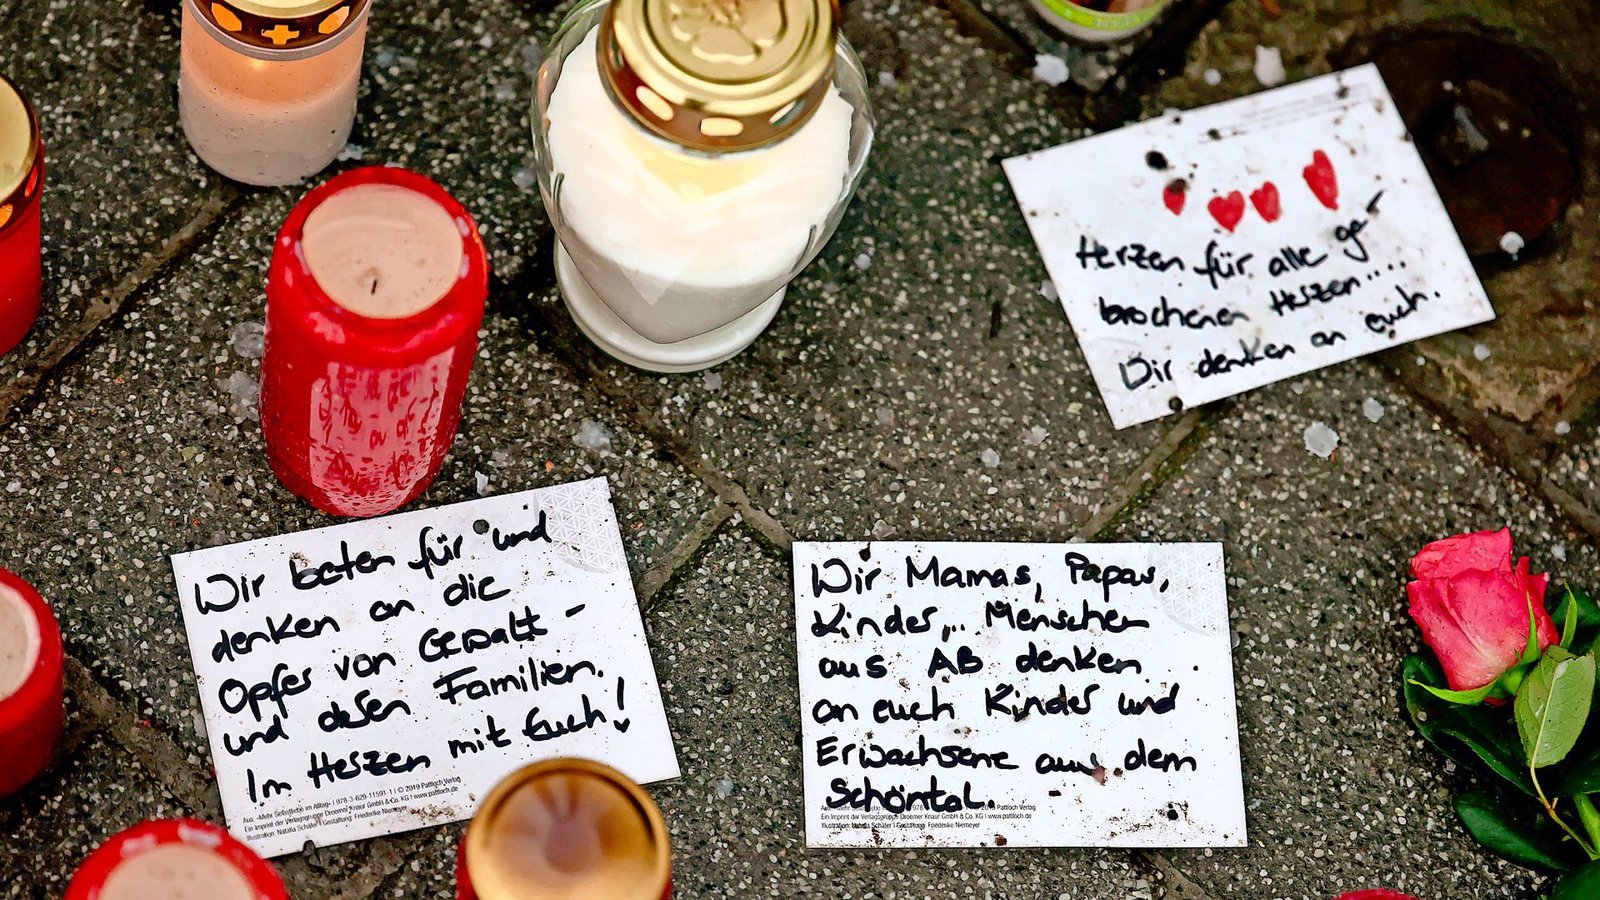 Herzen für alle ge-
brochenen Herzen.....
Wir denken an euch.
Wir beten für und
denken an die
Opfer von Gewalt-
und deren Familien.
Im Herzen mit Euch!
Aus: »Mehr Selbstliebe im Alltag« | 978-3-629-11591-1 | © 2019 Pattloch Verlag
Ein Imprint der Verlagsgruppe Droemer Knaur GmbH & Co. KG | www.pattloch.de
Illustration: Natalia Schäfer | Gestaltung: Friederike Niemeyer
Wir Mamas, Papas,
Kinder,.. Menschen
aus AB denken
an euch Kinder und
Erwachsene aus dem
Schöntal.
2019 Pattloch Verlag
Ein Imprint der Verlagsgruppe Droemer Knaur GmbH & Co. KG | www.pattloch.de
Illustration: Natalia Schäfer | Gestaltung: Friederike Niemeyer